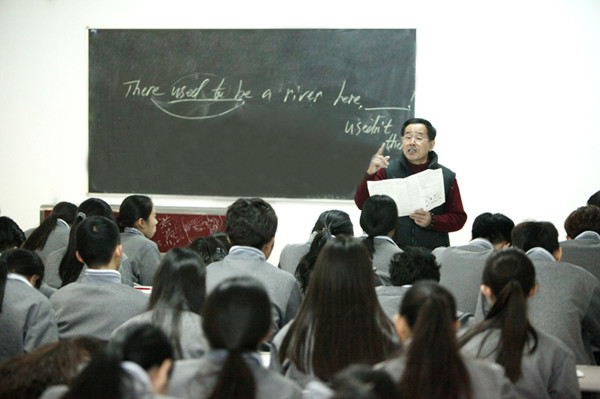 There used to be a river here, ____,
usedn't
the